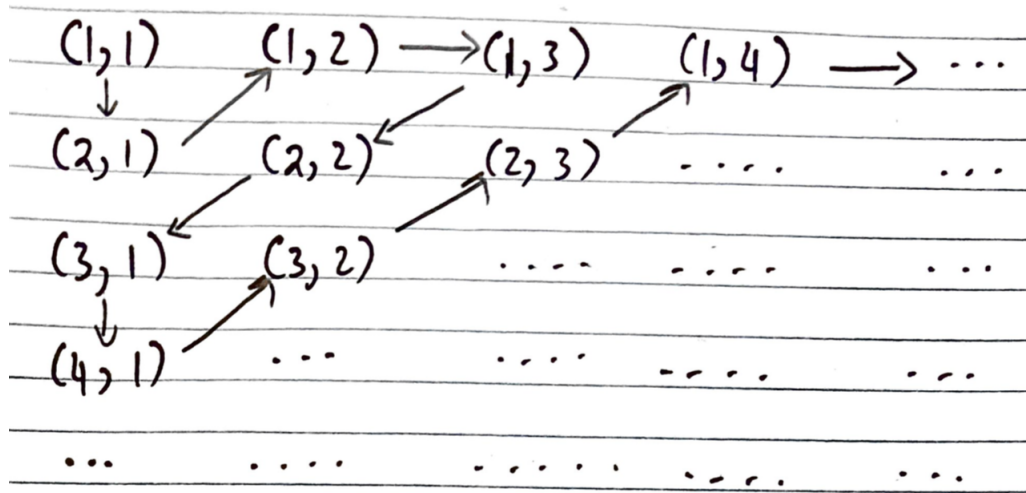 (1,1) (1,2) → (1,3) (1,4) → ...
(2,1) (2,2) (2,3) .... ...
(3,1) (3,2) ..... ..... ...
(4,1) ... .... ..... ...
... .... ...... .... ...